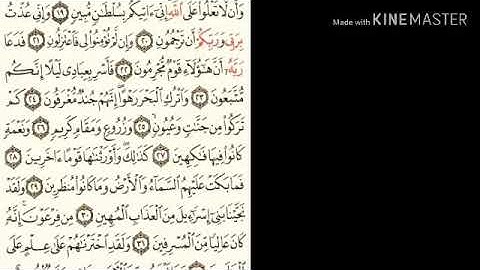 وَأَن لَّا تَعْلُوا۟ عَلَى ٱللَّهِ إِنِّىٓ ءَاتِيكُم بِسُلْطَٰنٍ مُّبِينٍ ١٩ وَإِنِّى عُذْتُ
بِرَبِّى وَرَبِّكُمْ أَن تَرْجُمُونِ ٢٠ وَإِن لَّمْ تُؤْمِنُوا۟ لِى فَٱعْتَزِلُونِ ٢١ فَدَعَا
رَبَّهُۥٓ أَنَّ هَٰٓؤُلَآءِ قَوْمٌ مُّجْرِمُونَ ٢٢ فَأَسْرِ بِعِبَادِى لَيْلًا إِنَّكُم
مُّتَّبَعُونَ ٢٣ وَٱتْرُكِ ٱلْبَحْرَ رَهْوًا إِنَّهُمْ جُندٌ مُّغْرَقُونَ ٢٤ كَمْ
تَرَكُوا۟ مِن جَنَّٰتٍ وَعُيُونٍ ٢٥ وَزُرُوعٍ وَمَقَامٍ كَرِيمٍ ٢٦ وَنَعْمَةٍ
كَانُوا۟ فِيهَا فَٰكِهِينَ ٢٧ كَذَٰلِكَ وَأَوْرَثْنَٰهَا قَوْمًا ءَاخَرِينَ ٢٨
فَمَا بَكَتْ عَلَيْهِمُ ٱلسَّمَآءُ وَٱلْأَرْضُ وَمَا كَانُوا۟ مُنظَرِينَ ٢٩ وَلَقَدْ
نَجَّيْنَا بَنِىٓ إِسْرَٰٓءِيلَ مِنَ ٱلْعَذَابِ ٱلْمُهِينِ ٣٠ مِن فِرْعَوْنَ إِنَّهُۥ
كَانَ عَالِيًا مِّنَ ٱلْمُسْرِفِينَ ٣١ وَلَقَدِ ٱخْتَرْنَٰهُمْ عَلَىٰ عِلْمٍ عَلَى
Made with KINEMASTER